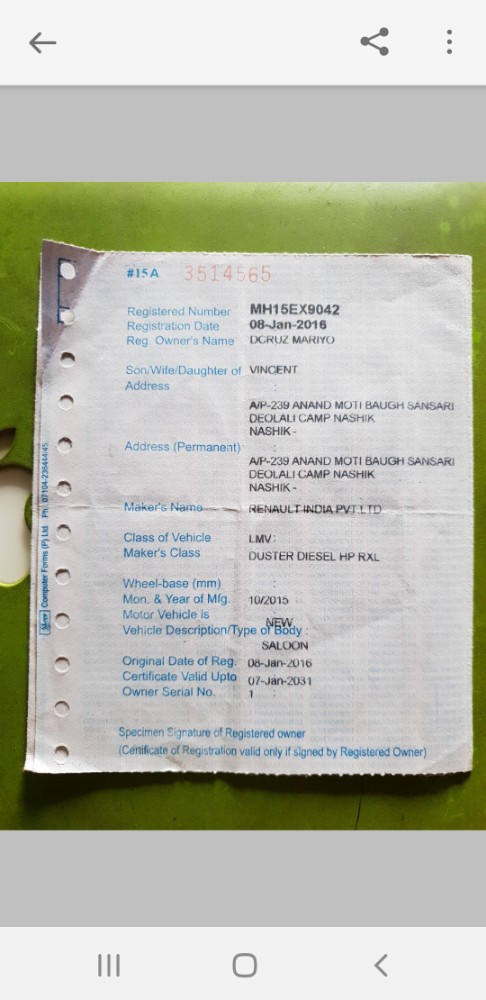 #15A 3514565
Registered Number MH15EX9042
Registration Date 08-Jan-2016
Reg. Owner's Name DCRUZ MARIYO
Son/Wife/Daughter of VINCENT
Address :
A/P-239 ANAND MOTI BAUGH SANSARI
DEOLALI CAMP NASHIK
NASHIK -
Address (Permanent) :
A/P-239 ANAND MOTI BAUGH SANSARI
DEOLALI CAMP NASHIK
NASHIK -
Maker's Name RENAULT INDIA PVT LTD
Class of Vehicle LMV :
Maker's Class DUSTER DIESEL HP RXL
Wheel-base (mm) :
Mon. & Year of Mfg. 10/2015
Motor Vehicle is NEW
Vehicle Description/Type of Body :
SALOON
Original Date of Reg. 08-Jan-2016
Certificate Valid Upto 07-Jan-2031
Owner Serial No. 1 :
Specimen Signature of Registered owner
(Certificate of Registration valid only if signed by Registered Owner)
Computer Forms (P) Ltd.